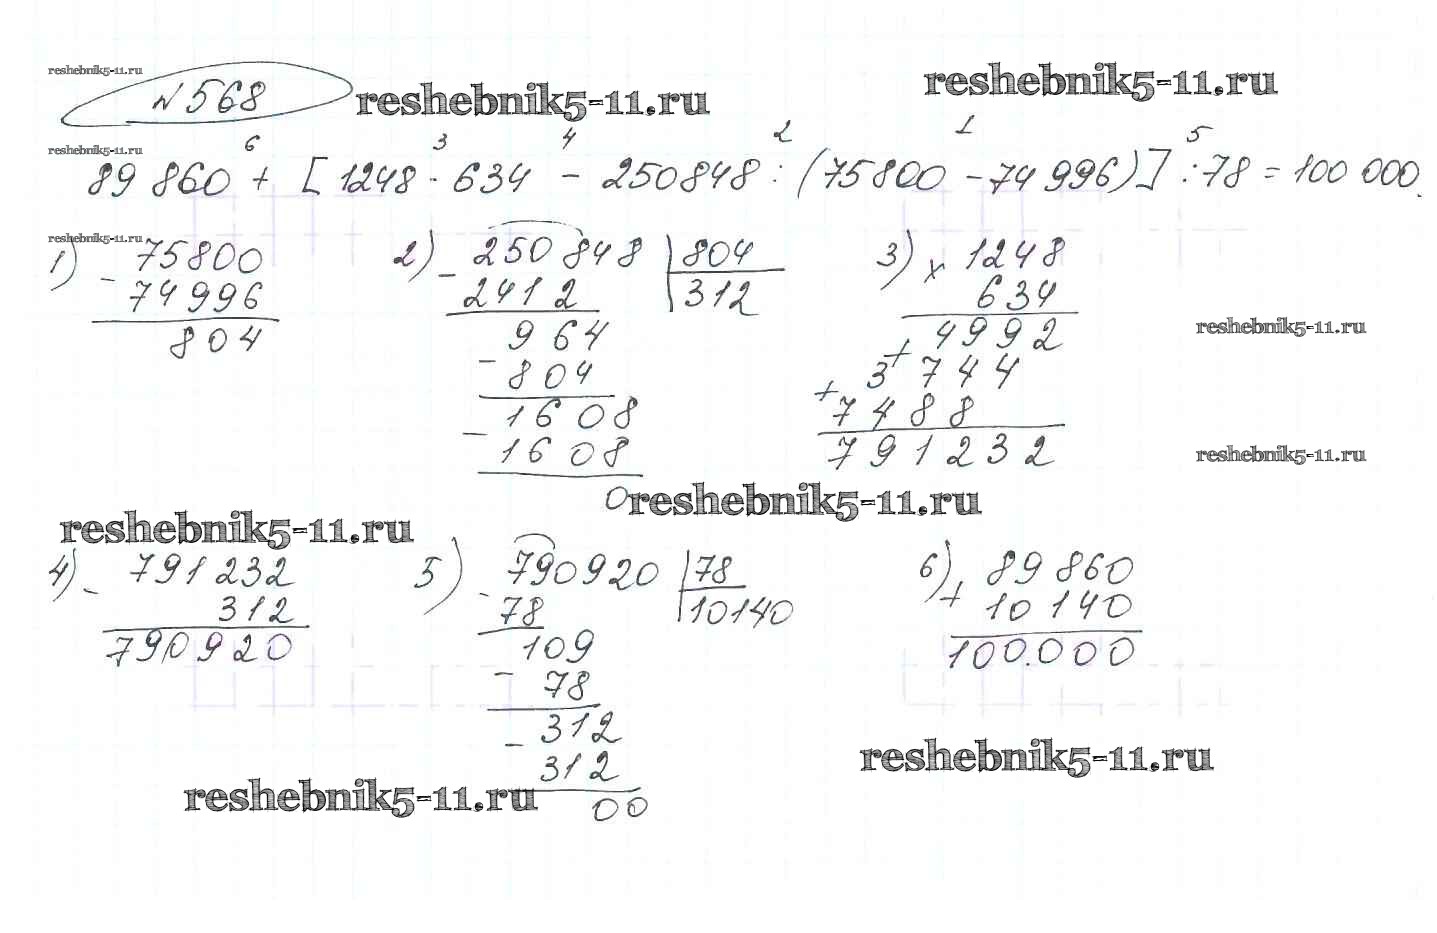 reshebnik5-11.ru
№568 reshebnik5-11.ru reshebnik5-11.ru
reshebnik5-11.ru
6 3 4 2 1 5
89 860 + [1248 · 634 - 250848 : (75800 - 74 996)] : 78 = 100 000.
reshebnik5-11.ru
1) - 75800
74996
804
2) - 250848 | 804
2412 | 312
964
- 804
1608
- 1608
0
3) x 1248
634
+ 4992
+ 3744
7488
791232
reshebnik5-11.ru
reshebnik5-11.ru
reshebnik5-11.ru
reshebnik5-11.ru
4) - 791232
312
790920
5) - 790920 | 78
78 | 10140
109
- 78
312
- 312
00
6) + 89 860
10 140
100.000
reshebnik5-11.ru
reshebnik5-11.ru